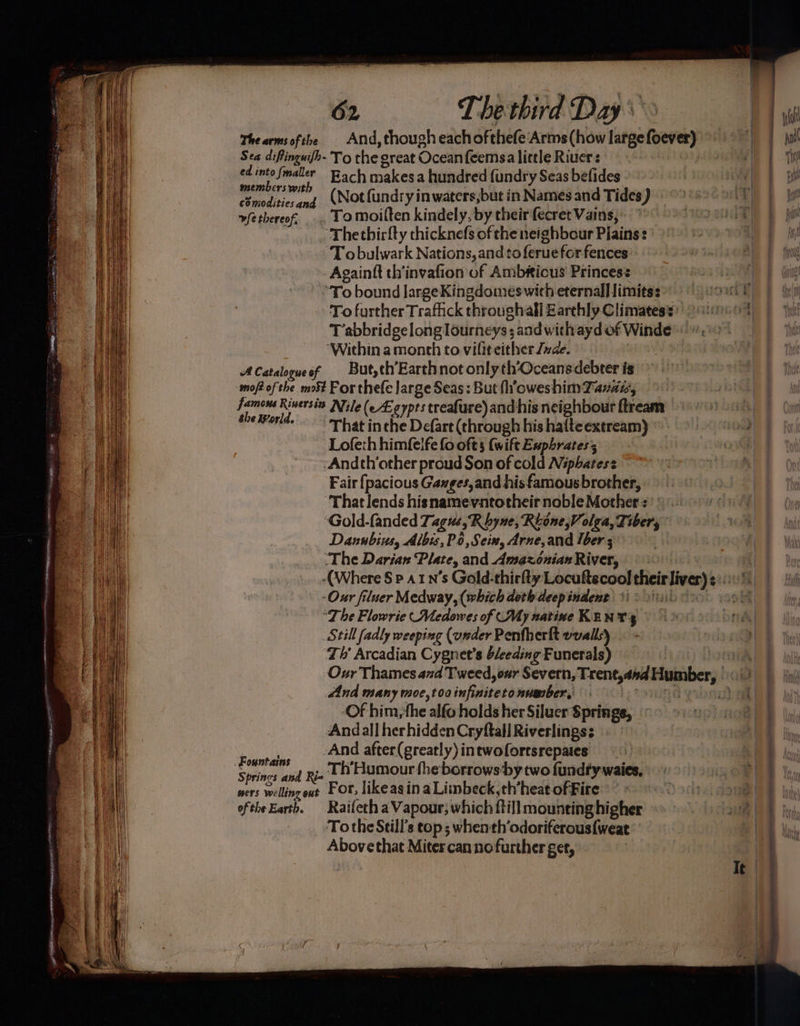 62 The third Day
The arms of the And, though each of theſe Arms (how large ſoever)
Sea diſtinguiſh- To the great Ocean ſeems a little River:
ed into ſmaller Each makes a hundred ſundry Seas beſides
members with
cōmodities and (Not ſundry in waters, but in Names and Tides)
vſe thereof. To moiſten kindely, by their ſecret Vains,
The thirſty thickneſs of the neighbour Plains:
To bulwark Nations, and to ſerue for fences
Againſt th'invaſion of Ambitious Princes:
To bound large Kingdomes with eternall limits:
To further Traffick through all Earthly Climates:
T'abbridge long Iourneys; and with ayd of Winde
Within a month to viſit either Inde.
A Catalogue of But, th'Earth not only th'Oceans debter is
moſt of the moſt For theſe large Seas: But ſh'owes him Tanais,
famous Riuers in Nile (Ægypts treaſure) and his neighbour ſtream
the World. That in the Deſart (through his haſte extream)
Loſeth himſelfe ſo oft; ſwift Euphrates;
And th'other proud Son of cold Niphates:
Fair ſpacious Ganges, and his famous brother,
That lends his name vnto their noble Mother:
Gold-ſanded Tagus, Rhyne, Rhóne, Volga, Tiber,
Danubius, Albis, Pó, Sein, Arne, and Iber;
The Darian Plate, and Amazónian River,
(Where SPAIN's Gold-thirſty Locuſts cool their liver):
Our ſiluer Medway, (which doth deep indent
The Flowrie Medowes of My natiue KENT;
Still ſadly weeping (vnder Penſherſt vvalls)
Th' Arcadian Cygnet's bleeding Funerals)
Our Thames and Tweed, our Severn, Trent, and Humber,
And many moe, too infinite to number,
Of him, ſhe alſo holds her Siluer Springs,
And all her hidden Cryſtall Riverlings:
And after (greatly) in two ſorts repaies
Fountains
Springs and Ri- Th'Humour ſhe borrows by two ſundry waies.
uers welling out For, like as in a Limbeck, th'heat of Fire
of the Earth. Raiſeth a Vapour, which ſtill mounting higher
To the Still's top; when th'odoriferous ſweat
Above that Miter can no further get,
It